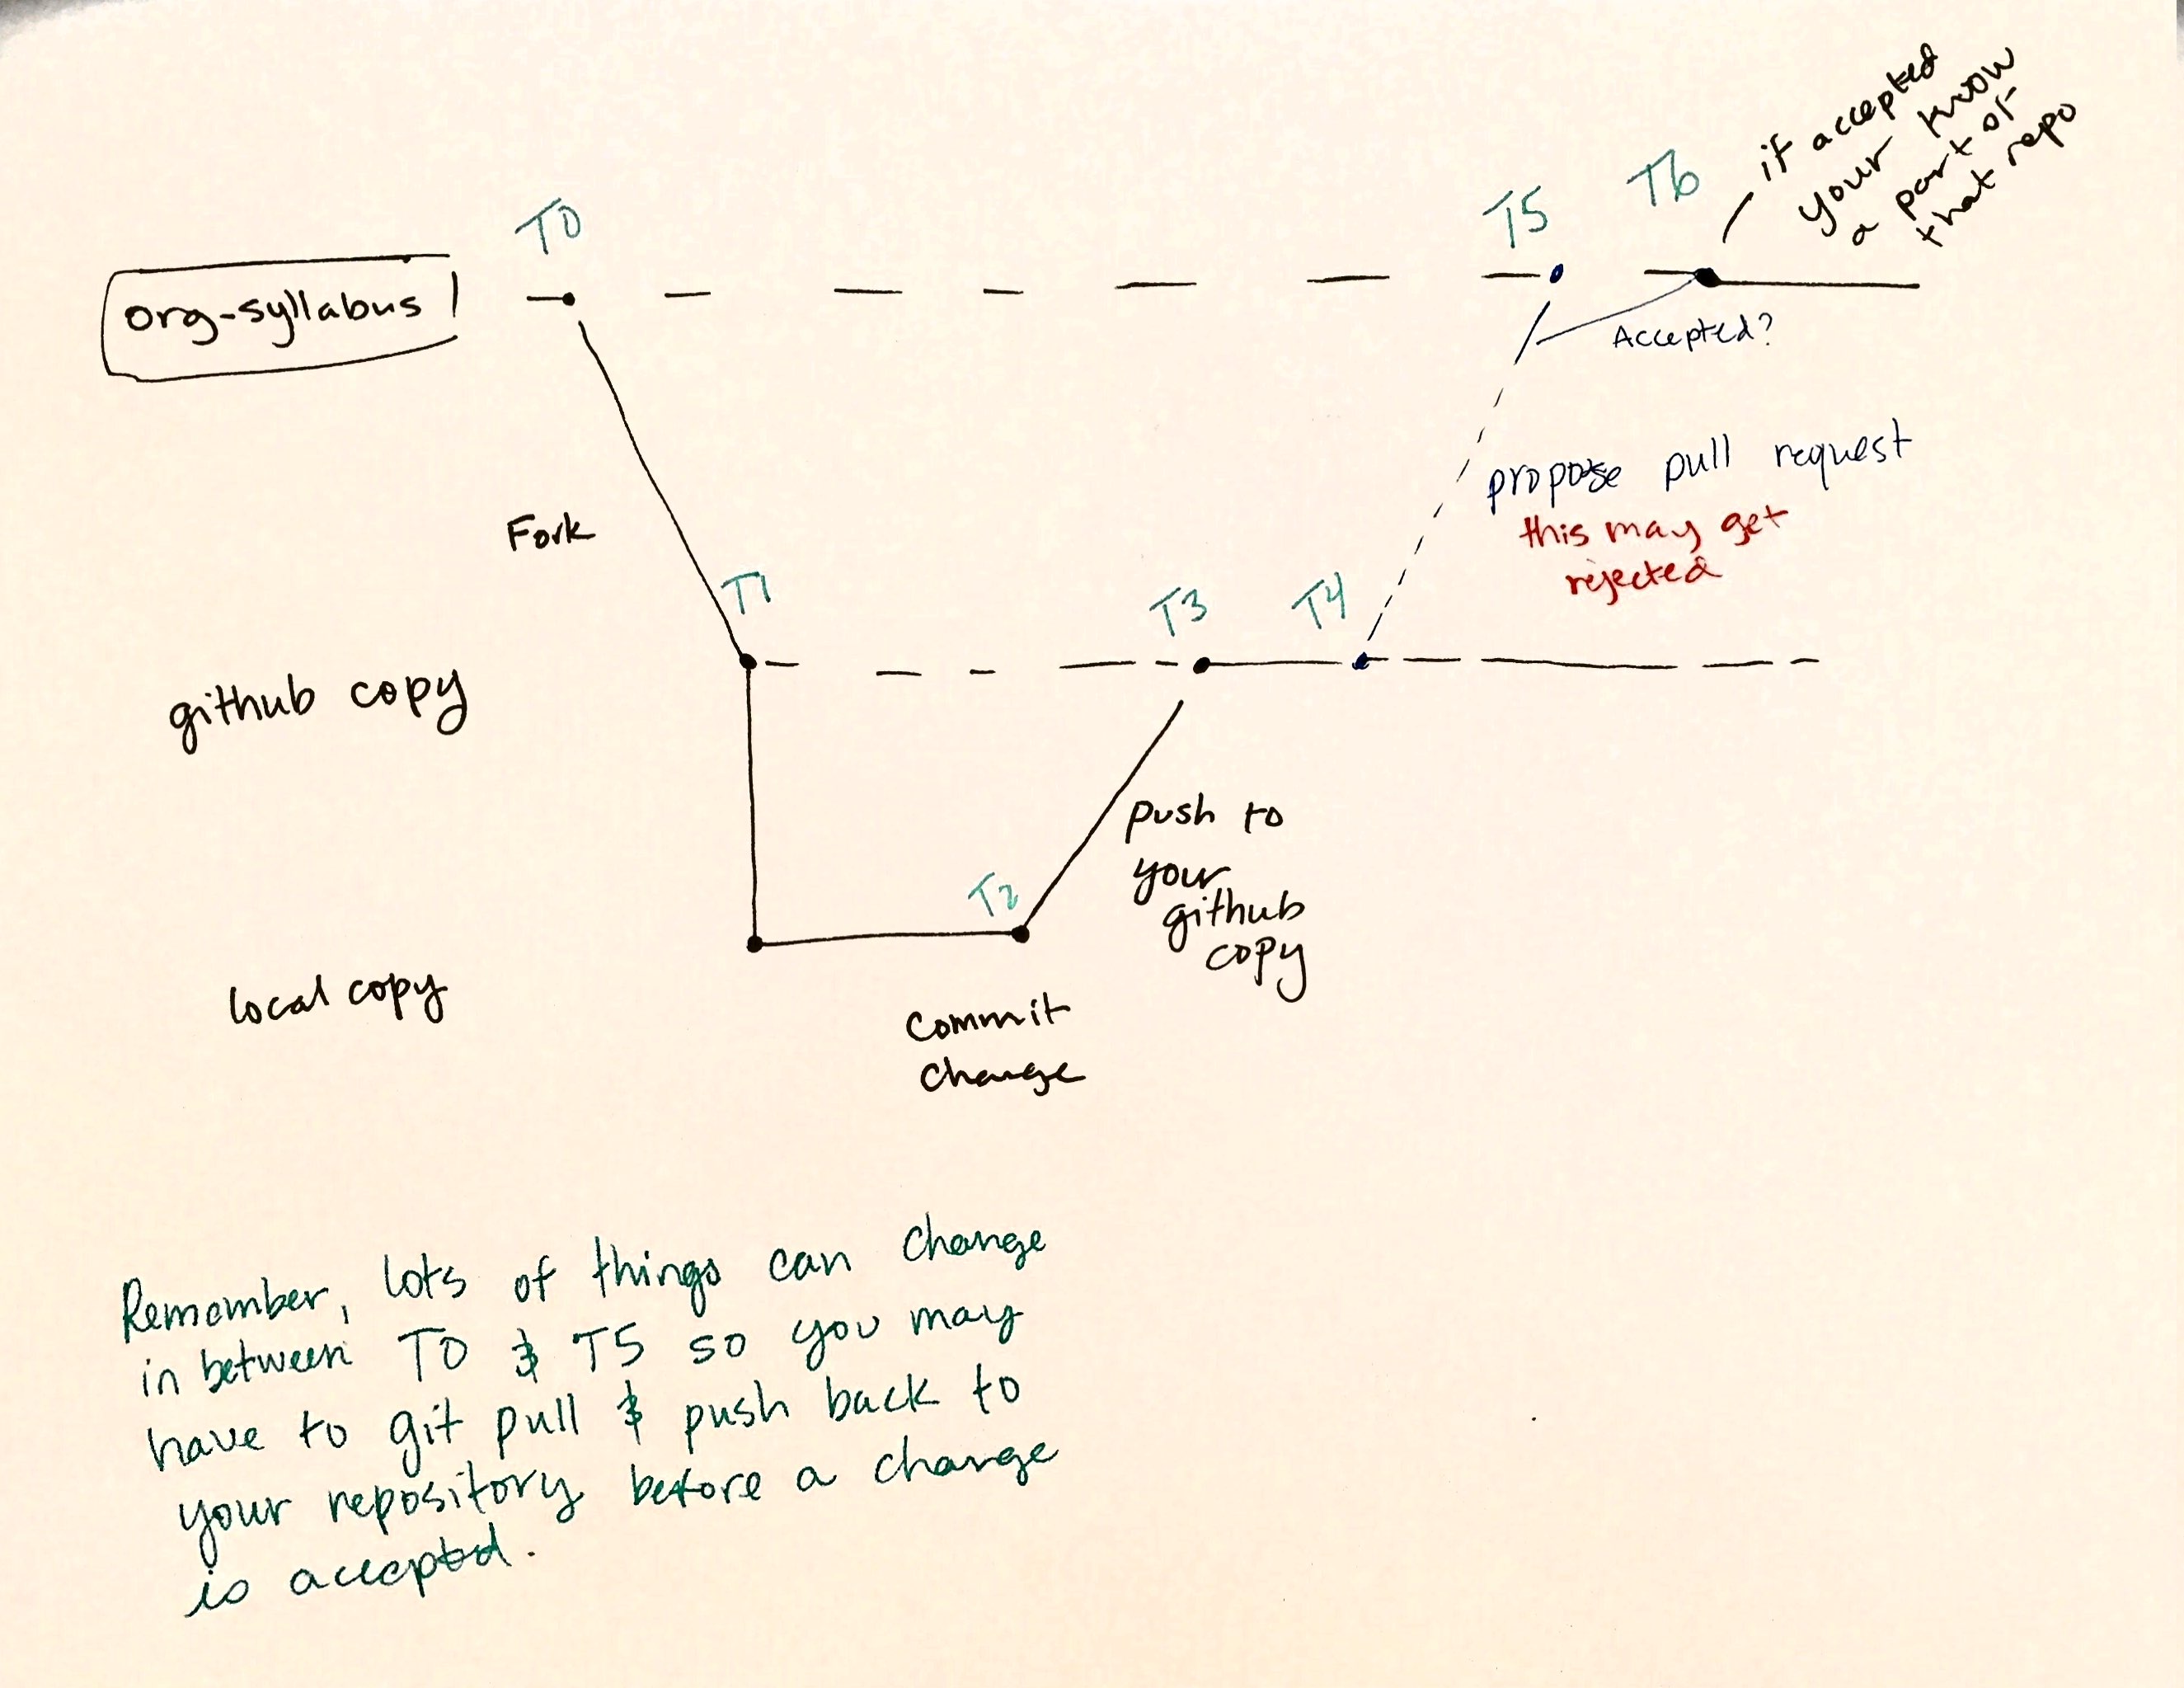 if accepted
your know
a part of
that repo
T0
T5
T6
org-syllabus
Accepted?
propose pull request
this may get
rejected
Fork
T1
T3
T4
github copy
push to
your
github
copy
T2
local copy
commit
change
Remember, lots of things can change
in between T0 & T5 so you may
have to git pull & push back to
your repository before a change
is accepted.